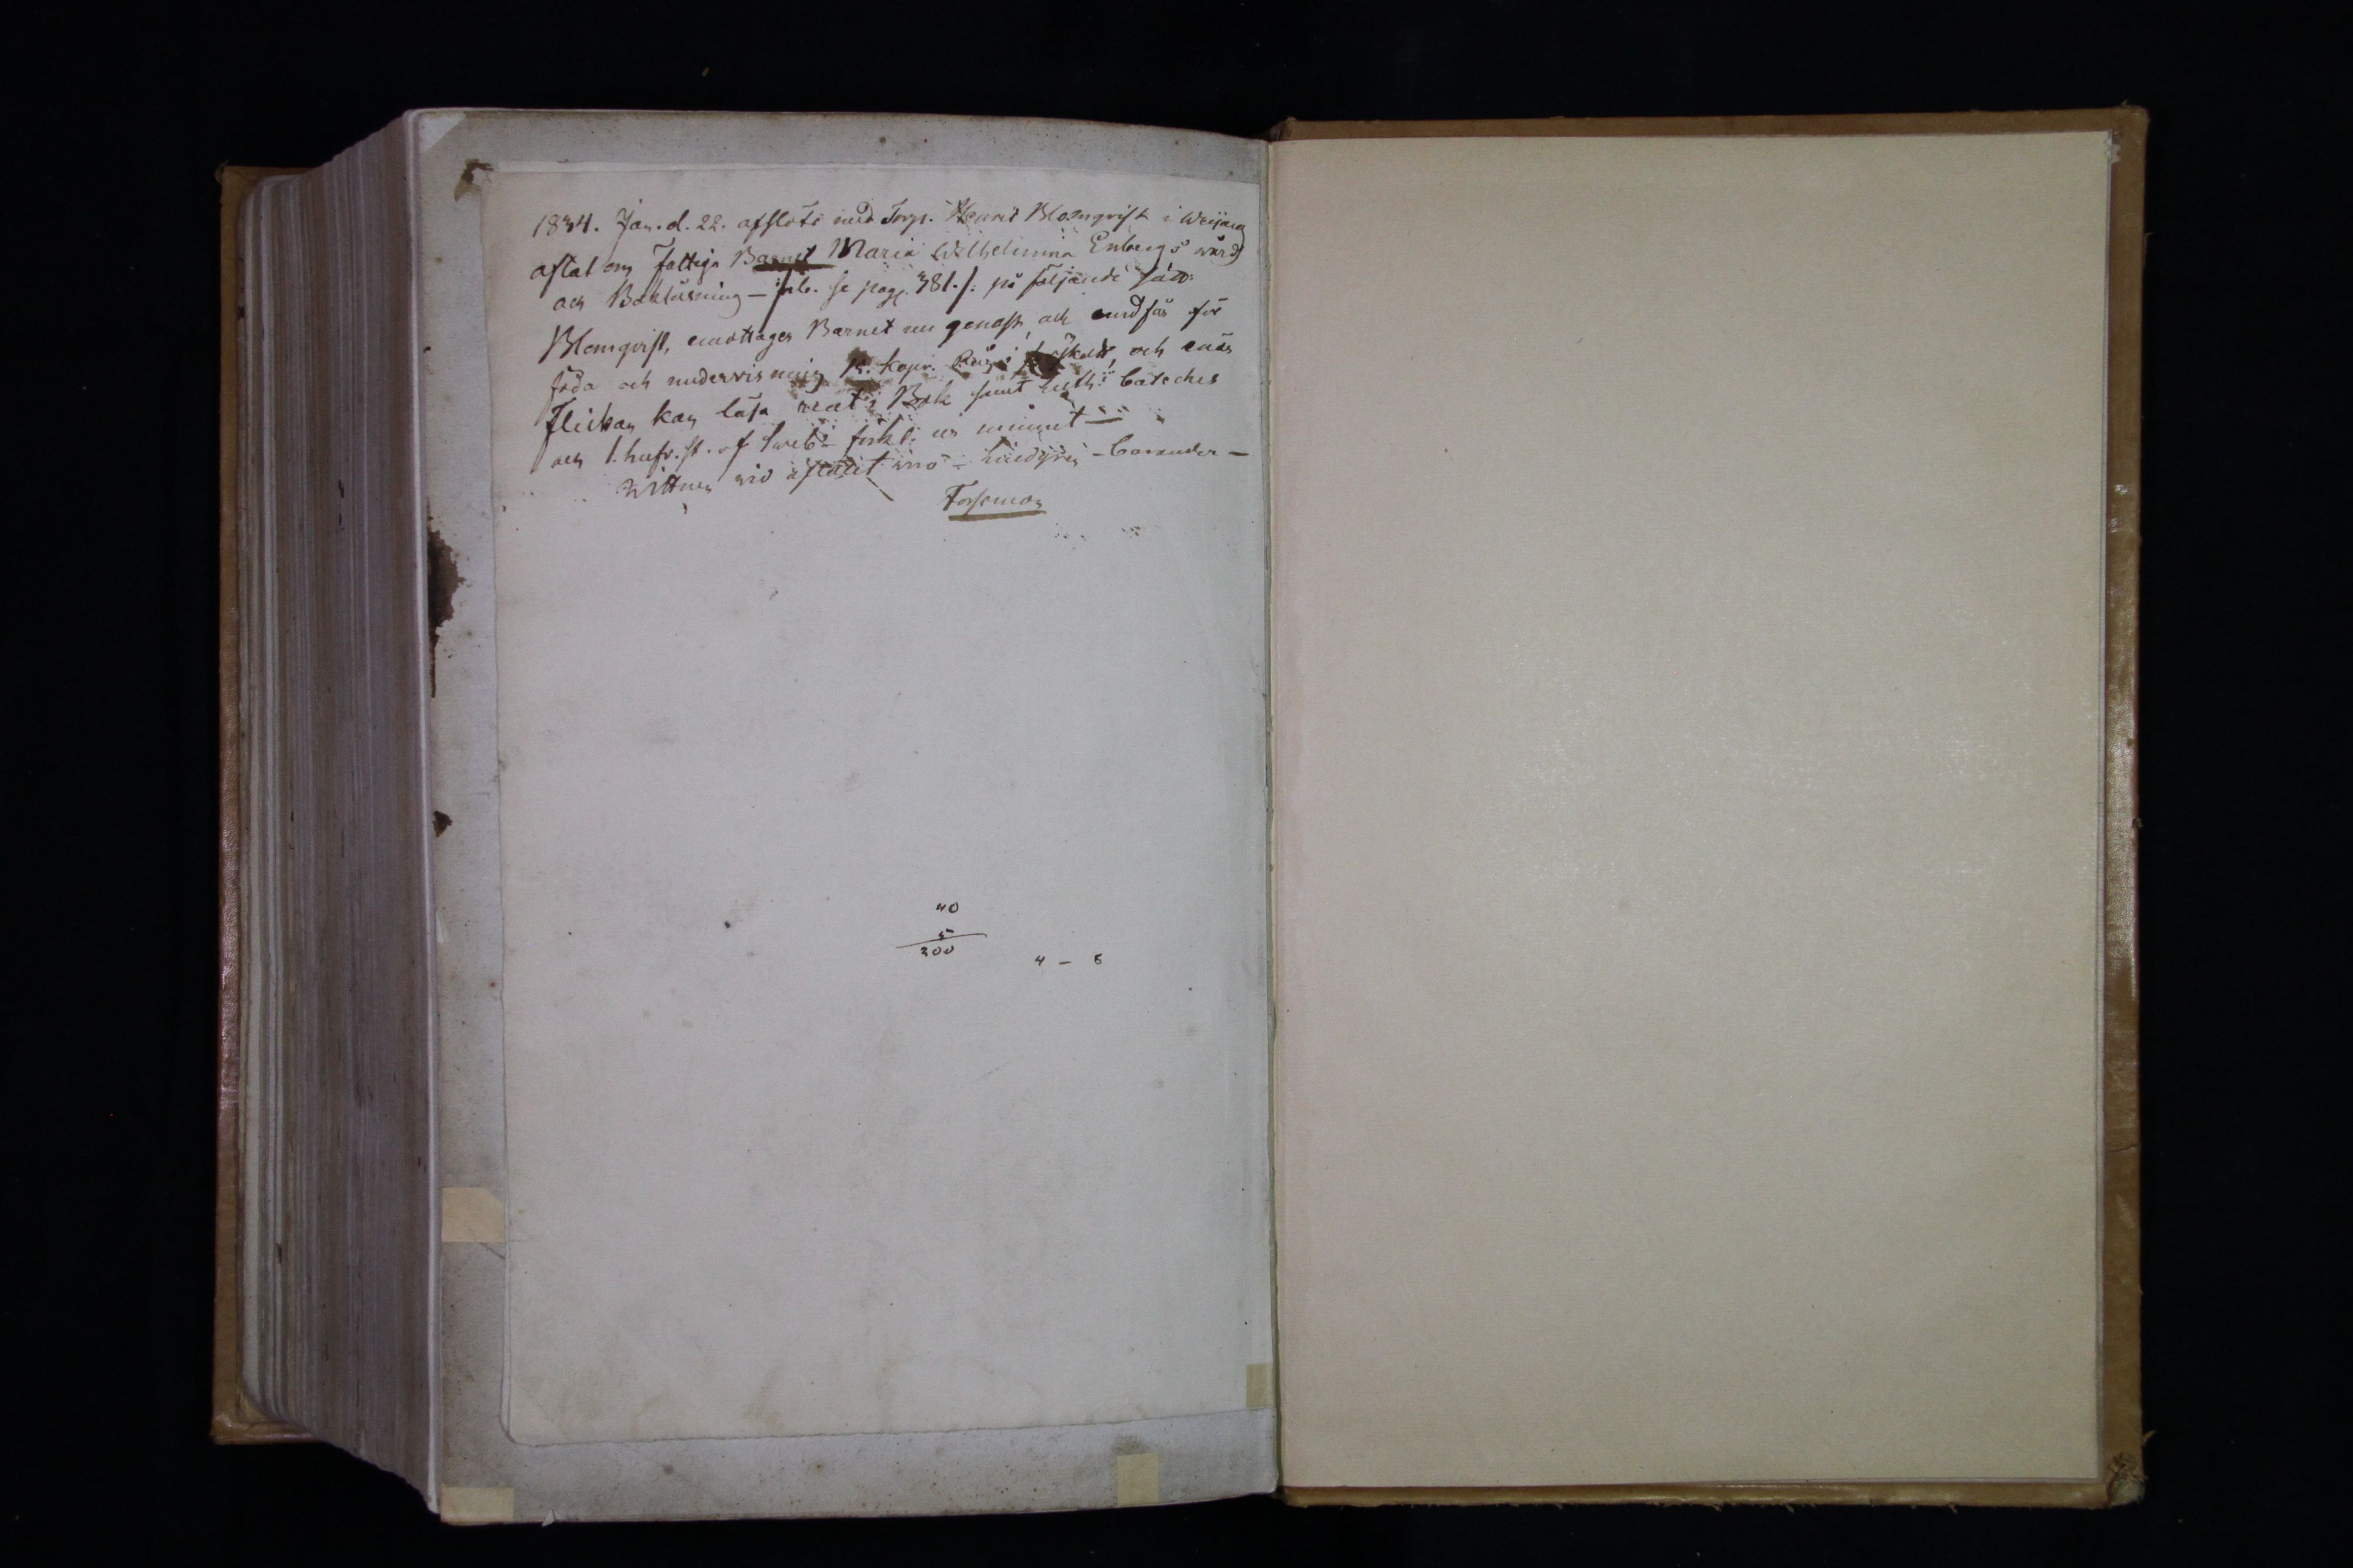 1834. Jan. d. 22. afslöts med Torp. Henric Blomqvist i
aftal om Fattiga Barnet Maria Wilhelmina Enbergs wård
och Bokläsning — se pag. 381./. på följande sätt:
Blomqvist, emottager Barnet nu genast, och undfår för
föda och undervisning 12. kop. och enär
Flickan kan läsa rent i Bok samt Luth: Cateches
och 1. hufv. st. af Sveb: förkl. ur minnet —
Wittnen wid aftalet
Forssman
40
5
200
4 — 5